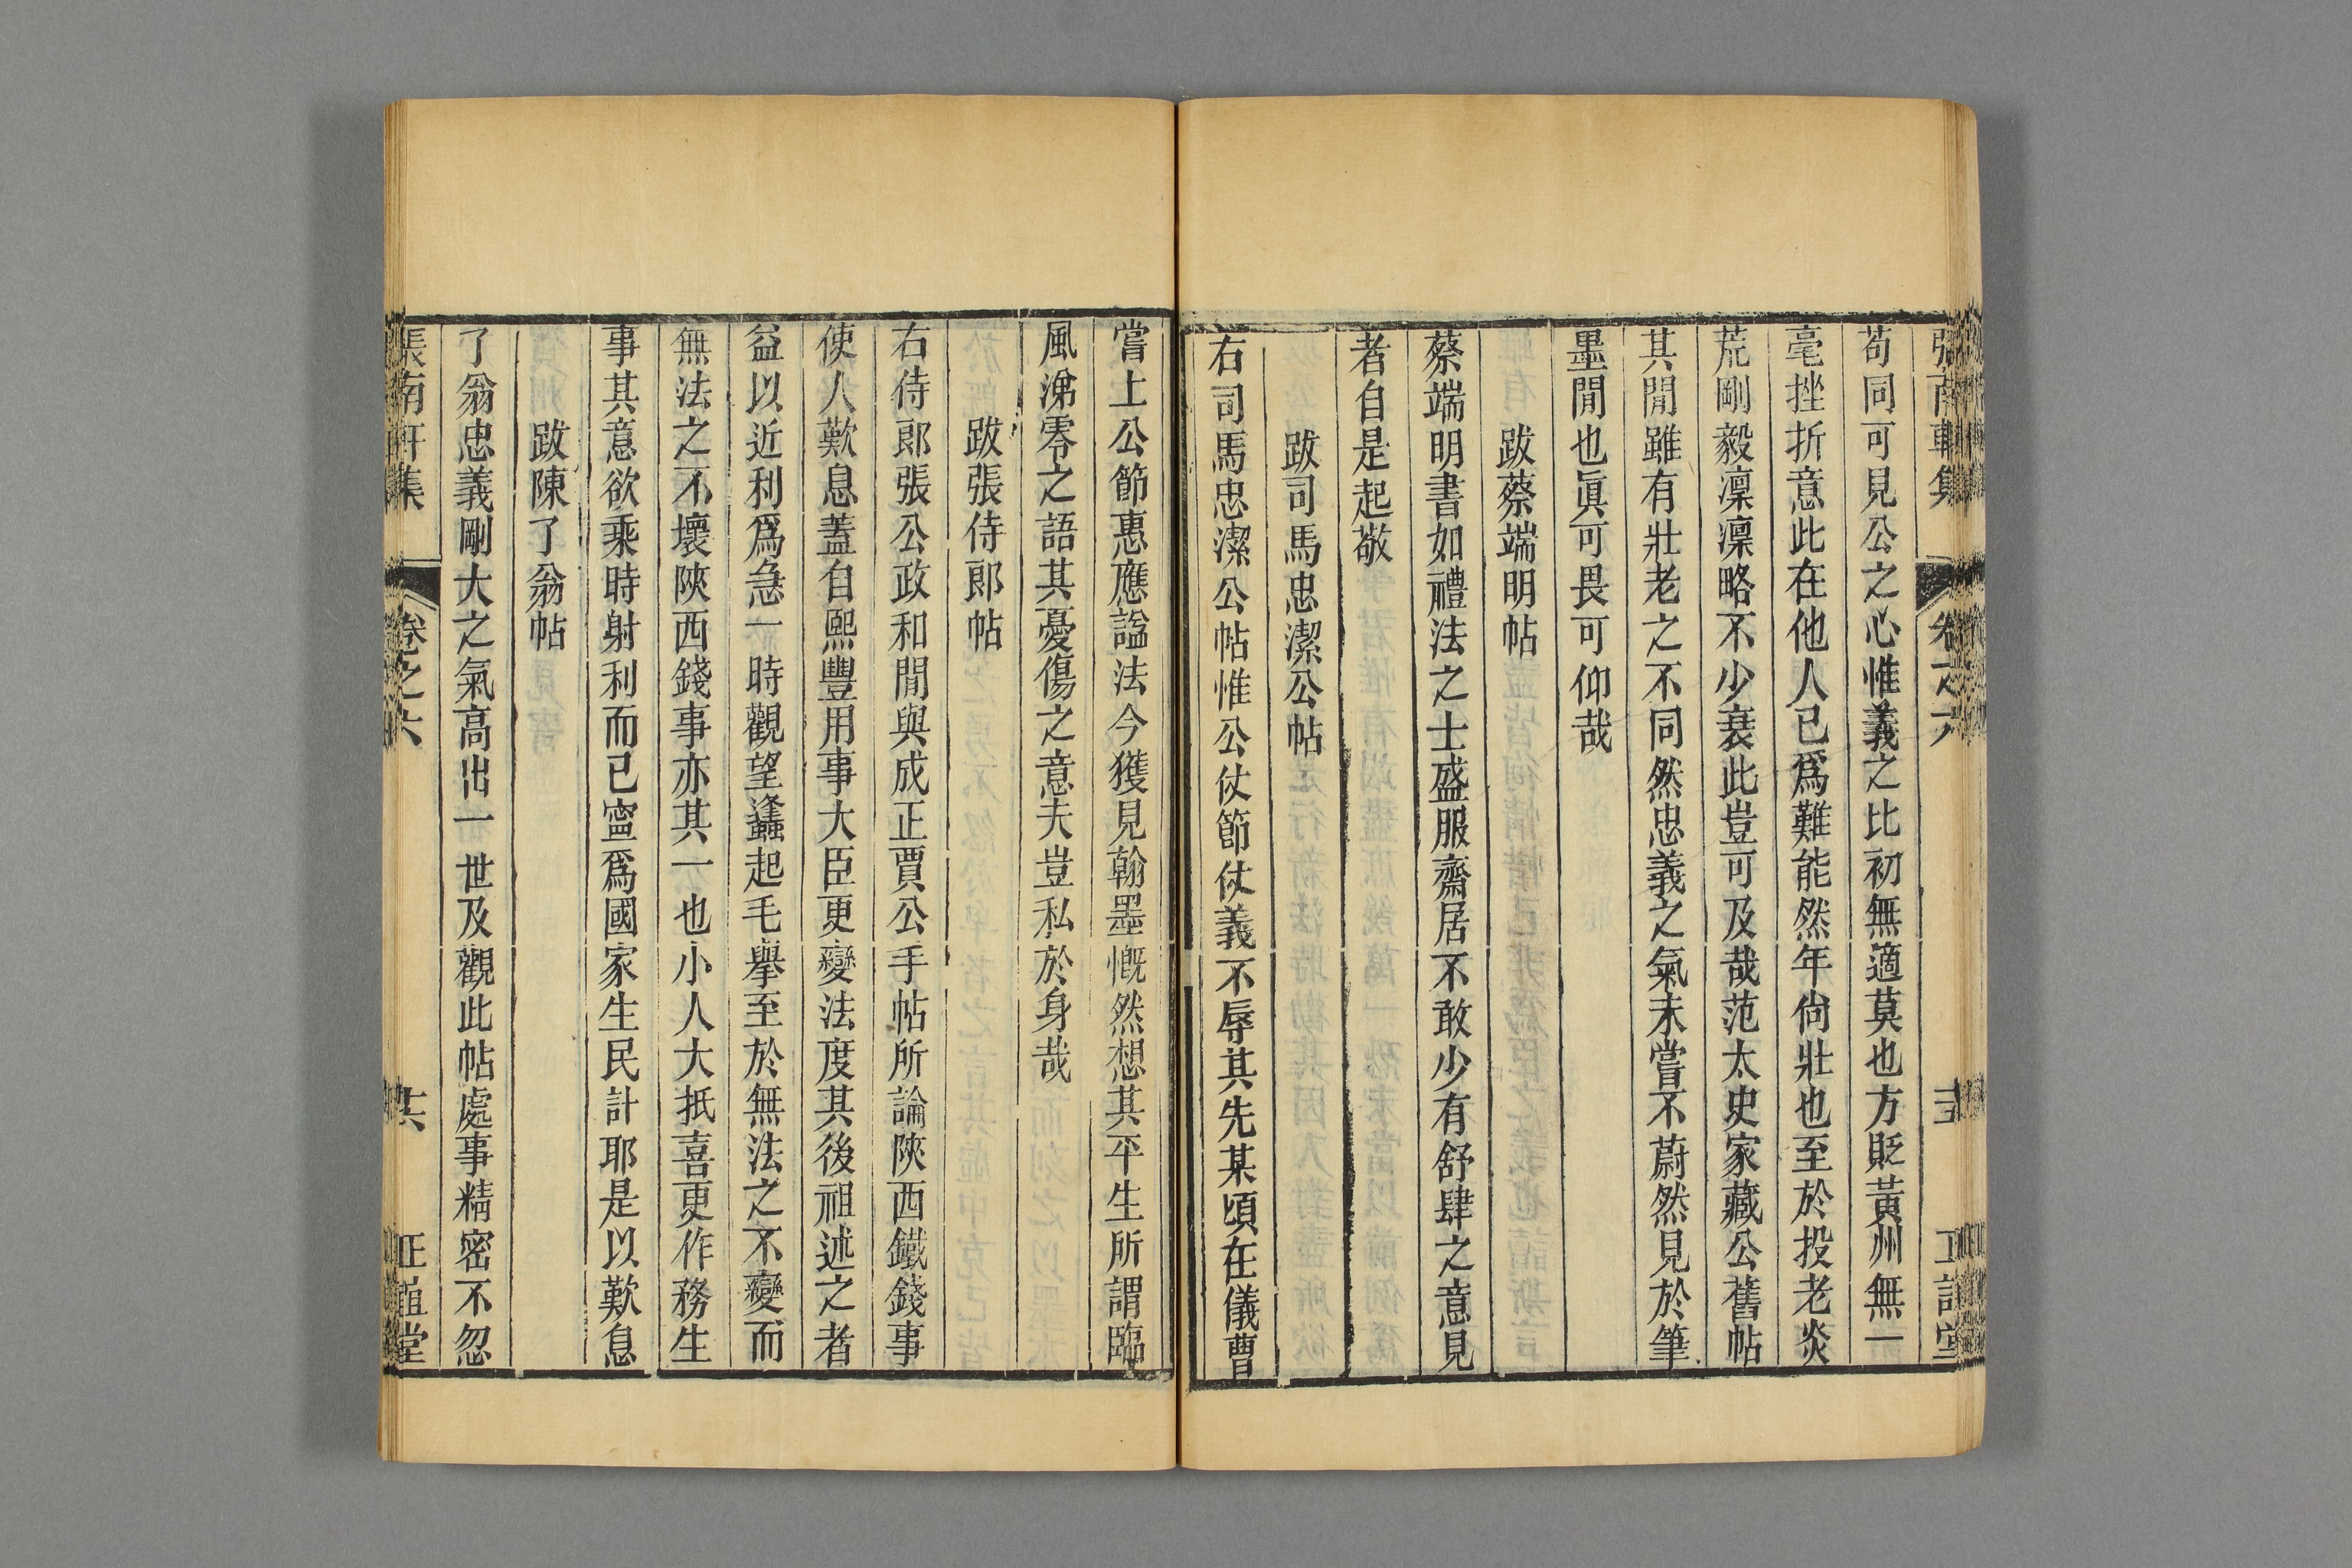 張南軒集
卷之六
十五
正誼堂
苟同可見公之心惟義之比初無適莫也方貶黃州無一
毫挫折意此在他人已爲難能然年尙壯也至於投老炎
荒剛毅凜凜略不少衰此豈可及哉范太史家藏公舊帖
其閒雖有壯老之不同然忠義之氣未嘗不蔚然見於筆
墨閒也眞可畏可仰哉
跋蔡端明帖
蔡端明書如禮法之士盛服齋居不敢少有舒肆之意見
者自是起敬
跋司馬忠潔公帖
右司馬忠潔公帖惟公仗節仗義不辱其先某頃在儀曹
嘗上公節惠應諡法今獲見翰墨慨然想其平生所謂臨
風涕零之語其憂傷之意夫豈私於身哉
跋張侍郞帖
右侍郞張公政和閒與成正賈公手帖所論陝西鐵錢事
使人歎息蓋自熙豐用事大臣更變法度其後祖述之者
益以近利爲急一時觀望蠭起毛擧至於無法之不變而
無法之不壞陝西錢事亦其一也小人大抵喜更作務生
事其意欲乘時射利而已寧爲國家生民計耶是以歎息
跋陳了翁帖
了翁忠義剛大之氣高出一世及觀此帖處事精密不忽
張南軒集
卷之六
十六
正誼堂